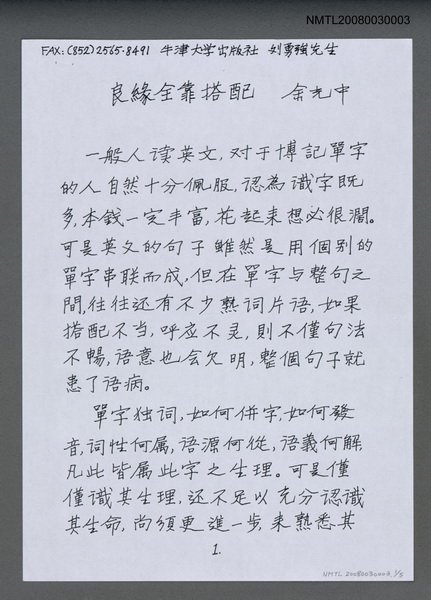 NMTL20080030003
FAX:(852)2565-8491 牛津大学出版社 刘勇強先生
良緣全靠搭配 余光中
一般人读英文,对于博記單字
的人自然十分佩服,認為識字既
多,本钱一定丰富,花起来想必很濶。
可是英文的句子雖然是用個别的
單字串联而成,但在單字与整句之
間,往往还有不少熟词片语,如果
搭配不当,呼应不灵,則不僅句法
不暢,语意也会欠明,整個句子就
患了语病。
單字独词,如何併字,如何發
音,词性何属,语源何從,语義何解,
凡此皆属此字之生理。可是僅
僅識其生理,还不足以充分認識
其生命,尚須更進一步,来熟悉其
1.
NMTL 20080030003, 1/5